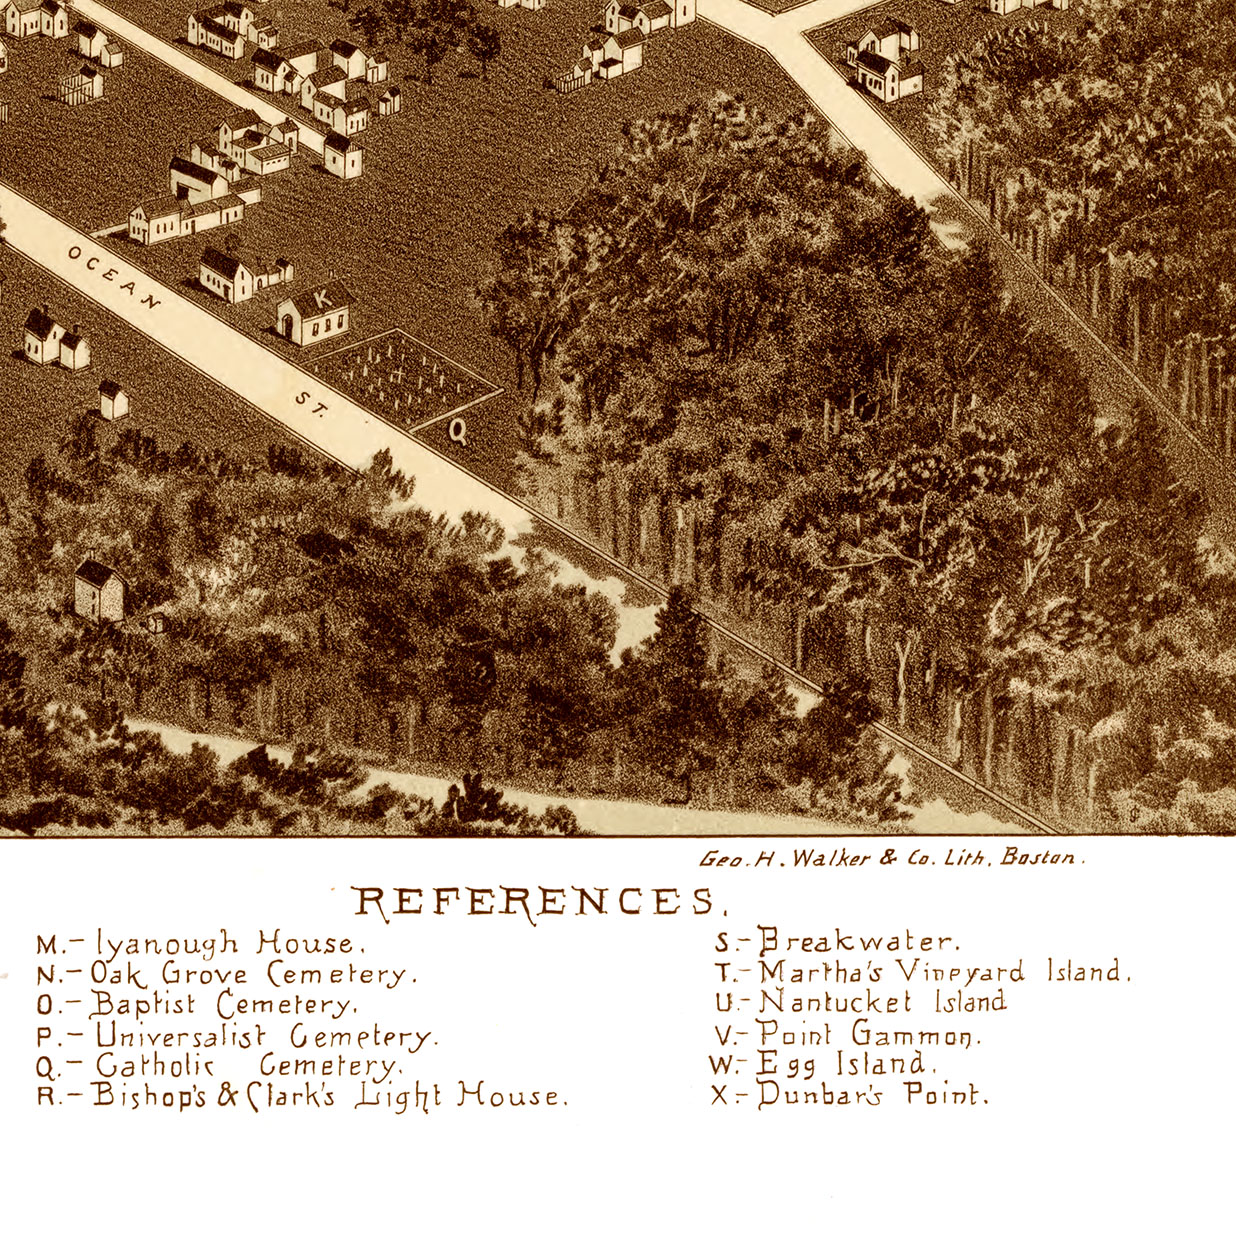 K
OCEAN ST.
Q
Geo. H. Walker & Co. Lith, Boston.
REFERENCES.
M.- Iyanough House.
N.- Oak Grove Cemetery.
O.- Baptist Cemetery.
P.- Universalist Cemetery.
Q.- Catholic Cemetery.
R.- Bishop's & Clark's Light House.
S.- Breakwater.
T.- Martha's Vineyard Island.
U.- Nantucket Island
V.- Point Gammon.
W.- Egg Island.
X.- Dunbar's Point.